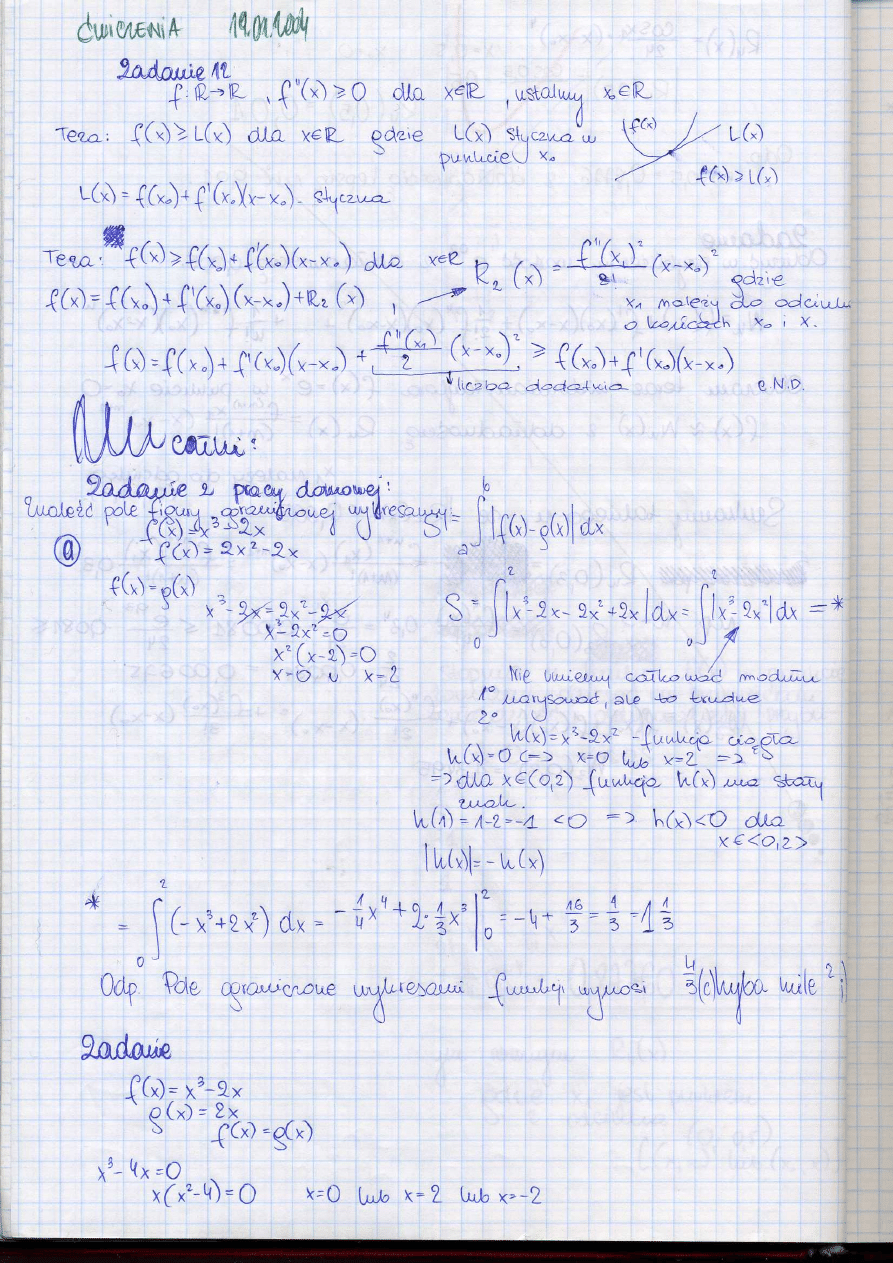 ĆWICZENIA 19.01.2004
Zadanie 12
f: R→R , f''(x) ≥ 0 dla x∈R , ustalmy x₀∈R
Teza: f(x) ≥ L(x) dla x∈R gdzie L(x) styczna w
punkcie x₀
f(x)
L(x)
f(x) ≥ L(x)
L(x) = f(x₀) + f'(x₀)(x-x₀) - styczna
Teza: f(x) ≥ f(x₀) + f'(x₀)(x-x₀) dla x∈R
R₂(x) = f''(x₁)²/2! (x-x₀)² gdzie
x₁ należy do odcinka
o końcach x₀ i x.
f(x) = f(x₀) + f'(x₀)(x-x₀) + R₂(x)
f(x) = f(x₀) + f'(x₀)(x-x₀) + f''(x₁)/2 (x-x₀)² ≥ f(x₀) + f'(x₀)(x-x₀)
liczba dodatnia C.N.D.
całki:
Zadanie z pracy domowej:
Znaleźć pole figury ograniczonej wykresamy
S = ∫ₐᵇ |f(x)-g(x)| dx
f(x) = x³-2x
ⓐ f(x) = 2x²-2x
f(x) = g(x)
x³-2x = 2x²-2x
x³-2x² = 0
x²(x-2) = 0
x=0 ∪ x=2
S = ∫₀² |x³-2x-2x²+2x| dx = ∫₀² |x³-2x²| dx = *
Nie umiemy całkować modułu
1° narysować, ale to trudne
2°
h(x) = x³-2x² - funkcja ciągła
h(x)=0 <=> x=0 lub x=2 =>
=> dla x∈(0,2) funkcja h(x) ma stały
znak.
h(1) = 1-2 = -1 < 0 => h(x)<0 dla
x∈<0,2>
|h(x)| = -h(x)
* = ∫₀² (-x³+2x²) dx = -1/4 x⁴ + 2·1/3 x³ |₀² = -4 + 16/3 = 4/3 = 1 1/3
Odp. Pole ograniczone wykresami funkcji wynosi 4/3 (c)hyba mile² ;)
Zadanie
f(x) = x³-2x
g(x) = 2x
f(x) = g(x)
x³-4x=0
x(x²-4)=0 x=0 lub x=2 lub x=-2